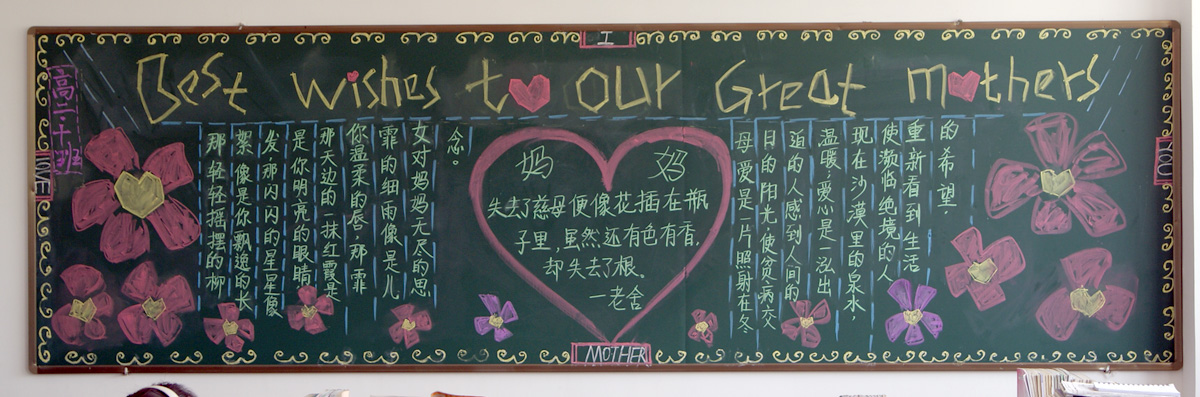 I
Best wishes to our Great mothers
高二·十班
LOVE
那轻轻摇摆的柳
絮像是你飘逸的长
发,那闪闪的星星像
是你明亮的眼睛
那天边的一抹红霞是
你温柔的唇,那霏
霏的细雨像是儿
女对妈妈无尽的思
念。
妈 妈
失去了慈母便像花插在瓶
子里,虽然还有色有香,
却失去了根。
一老舍
母爱是一片照射在冬
日的阳光,使贫病交
迫的人感到人间的
温暖,爱心是一泓出
现在沙漠里的泉水,
使濒临绝境的人
重新看到生活
的希望.
YOU
MOTHER